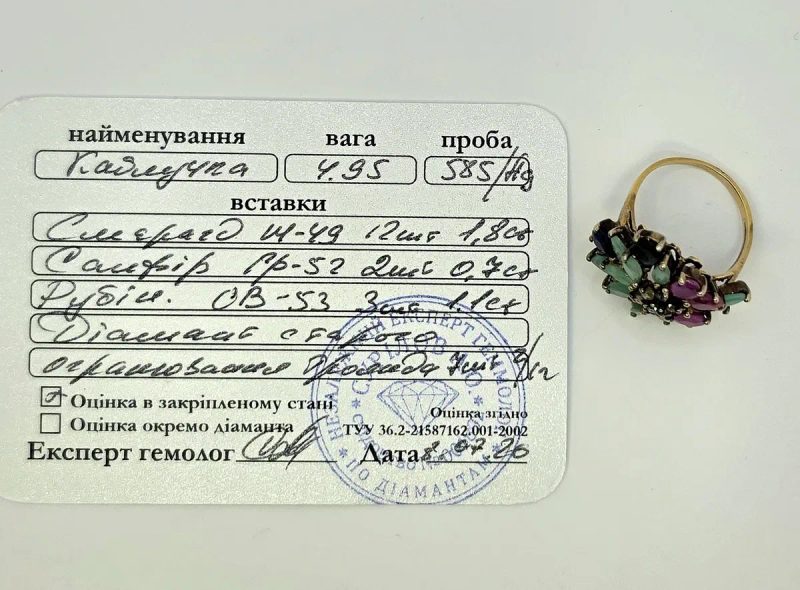 найменування вага проба
Каблучка 4.95 585/Au
вставки
Смарагд М-49 12шт 1,8ct
Сапфір Гр-52 2шт 0,7ct
Рубін. ОВ-53 3шт 1.1ct
Діамант старого
огранювання Троянда 7шт
Оцінка в закріпленому стані
Оцінка окремо діаманта
Оцінка згідно
ТУУ 36.2-21587162.001-2002
Експерт гемолог Дата 8.07.20
ЕКСПЕРТ ГЕММОЛОГ
ПО ДІАМАНТАМ